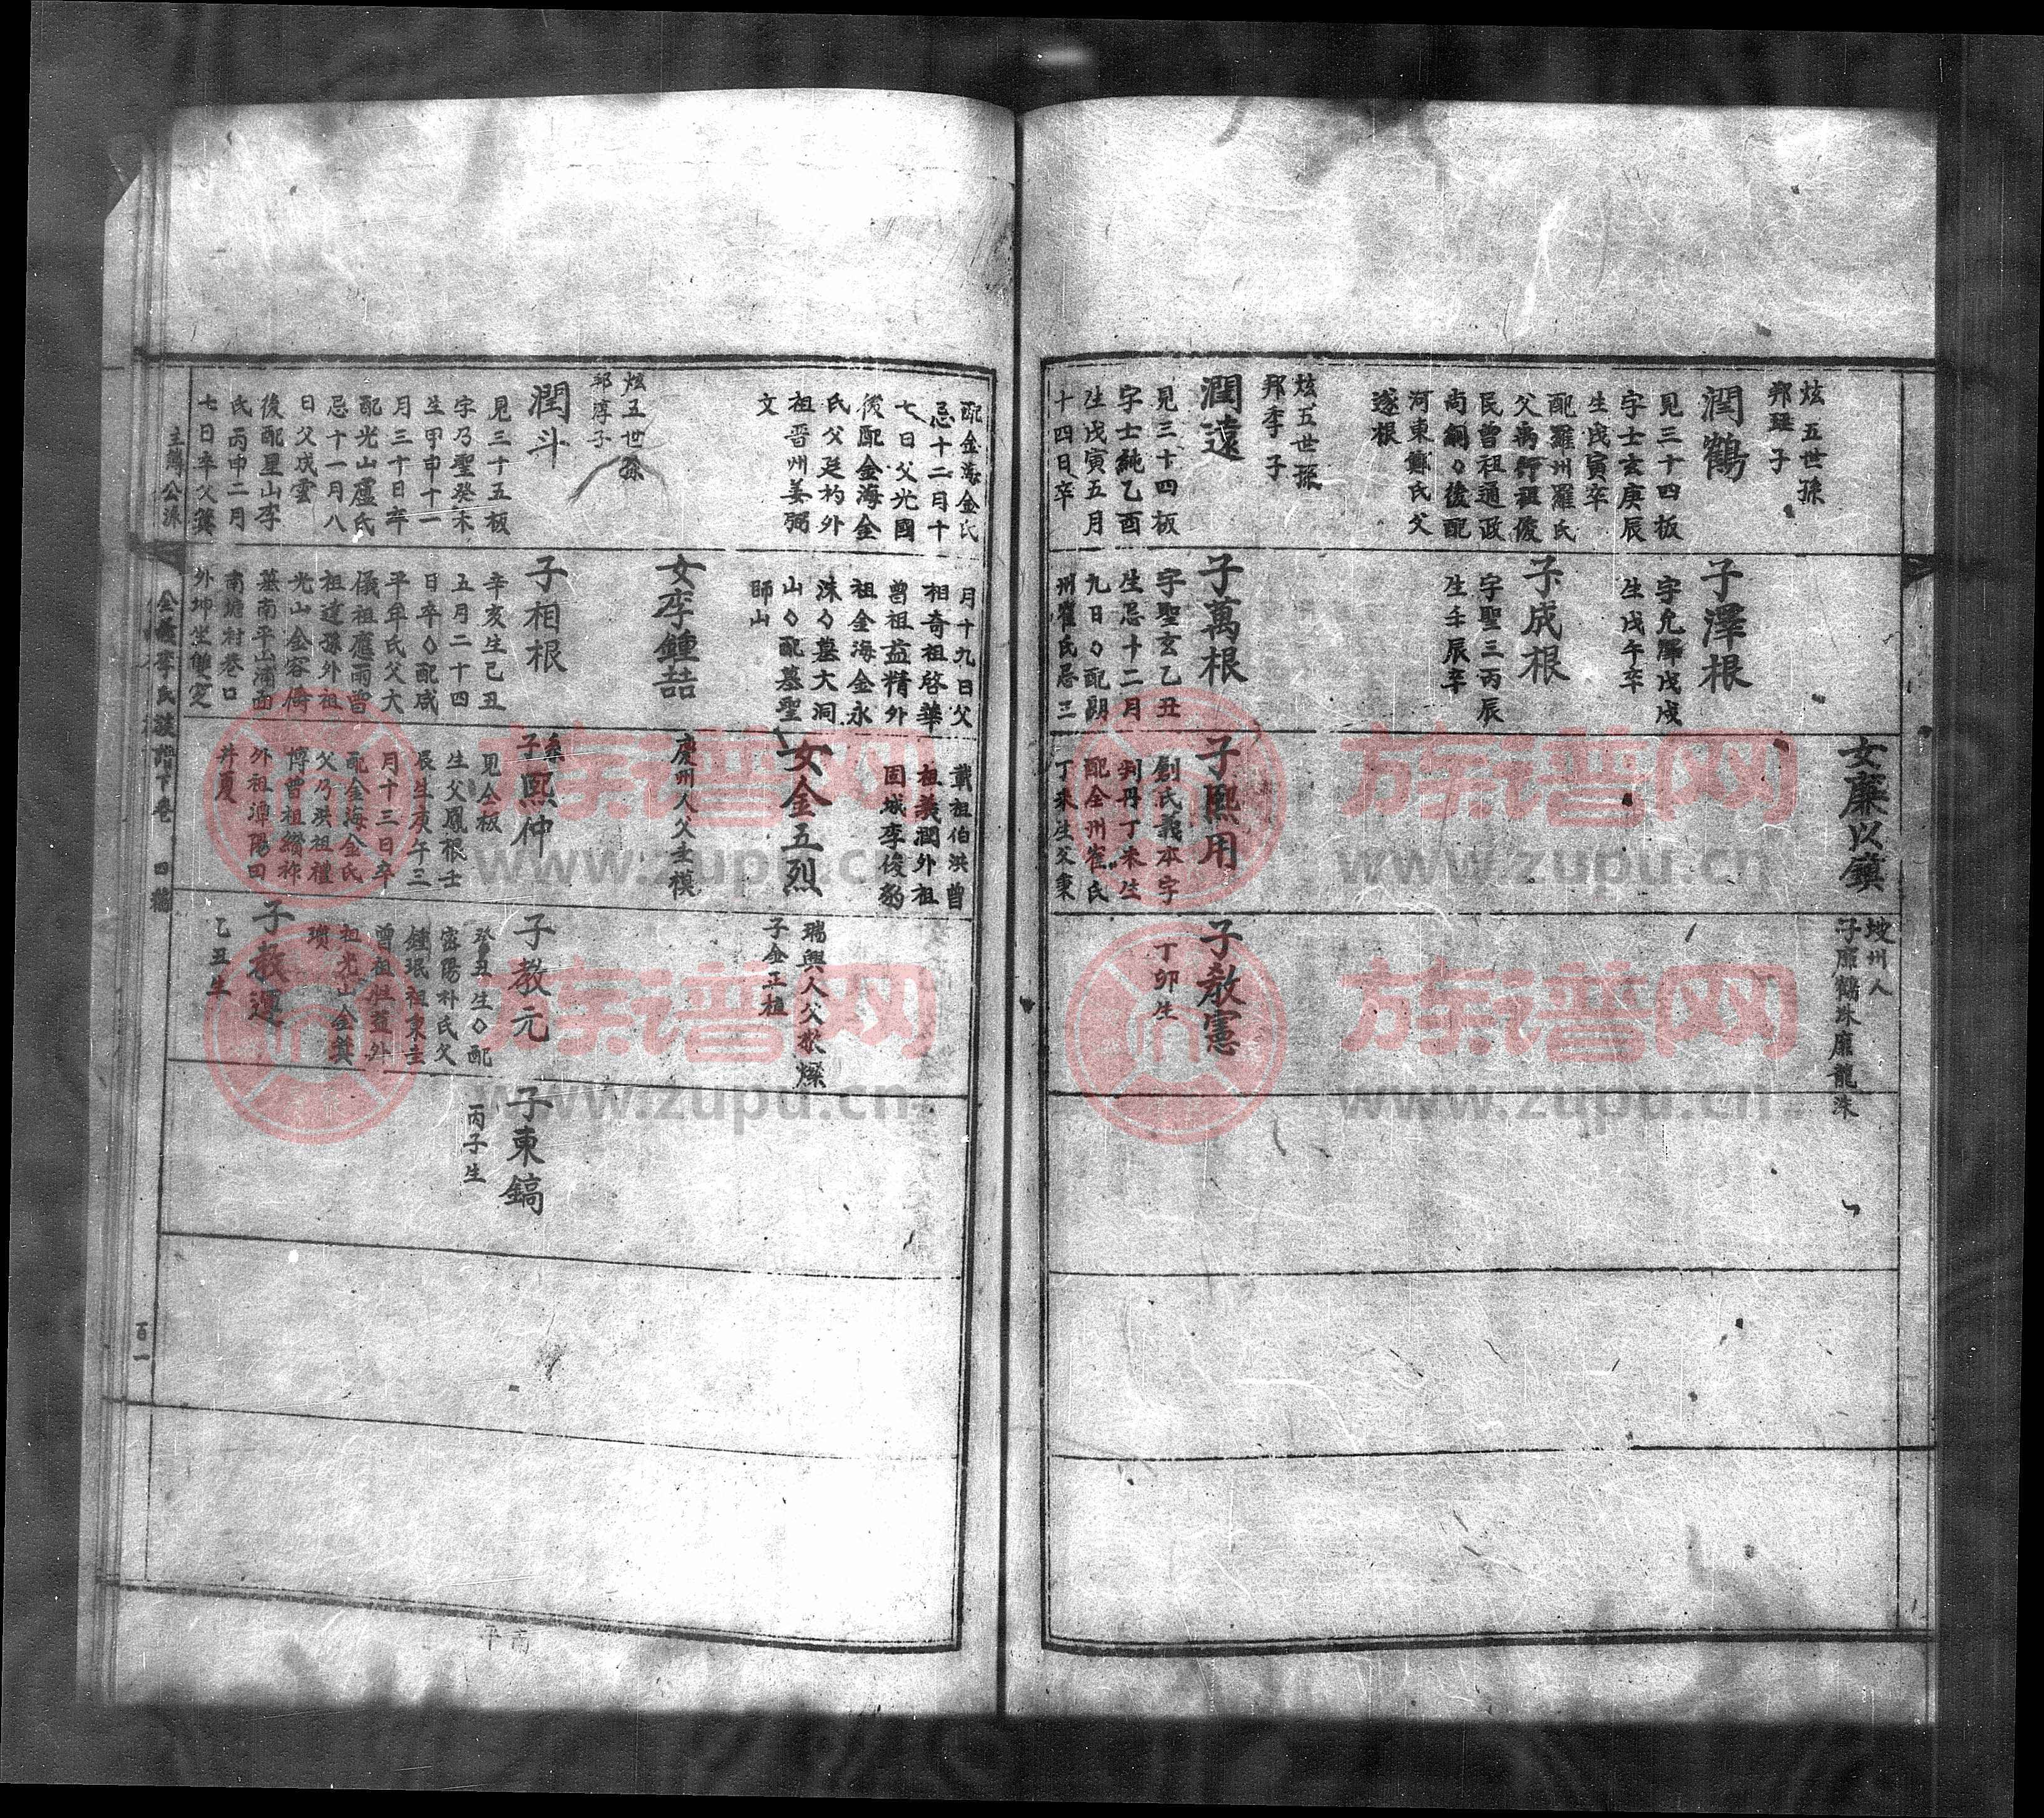 炫五世孫
邦子
潤鶴
見三十四板
字士玄庚辰
生戊寅卒
配羅州羅氏
民曾祖通政
河東鄭氏父
遂根
炫五世孫
邦季子
潤遠
見三十四板
字士純乙酉
生戊寅五月
十四日卒
子澤根
生戊午卒
子成根
字聖三丙辰
生壬辰卒
子萬根
字聖玄乙丑
生忌十二月
九日◇配
州崔氏忌三
女廉以鎮
子熙用
創氏義本字
判丹丁未生
配全州崔氏
丁未生父秉
坡州人
子廉鶴珠廉龍洙
子教憲
丁卯生
配金海金氏
忌十二月十
七日父光國
後配金海金
氏父廷杓外
祖晋州姜弼
文
炫五世孫
邦淳子
潤斗
見三十五板
字乃聖癸未
生甲申十一
月三十日卒
配光山盧氏
忌十一月八
日父成雲
後配星山李
氏丙申二月
七日卒父
主簿公派
月十九日父
相奇祖啓華
曾祖益精外
祖金海金永
洙◇墓大洞
山◇配墓聖
師山
女李鍾喆
子相根
辛亥生己丑
五月二十四
日卒◇配咸
平牟氏父大
儀祖應雨曾
祖達孫外祖
光山金容
墓南平山浦面
南塘村巷口
外坤坐雙窆
載祖伯洪曾
祖義潤外祖
固城李俊豹
女金五烈
慶州人父圭模
子熙仲
見仝板
生父鳳根士
辰生庚午三
月十三日卒
配金海金氏
父乃洪祖禮
博曾祖纉祚
外祖潭陽田
井夏
瑞興人父敬燦
子金正植
子教元
癸丑生◇配
密陽朴氏父
鍾珉祖東圭
曾祖胜益外
祖光山金箕
瓚
子教運
乙丑生
子東鎬
丙子生
百一
南平
族谱网
www.zupu.cn
族谱网
www.zupu.cn
族谱网
www.zupu.cn
族谱网
www.zupu.cn